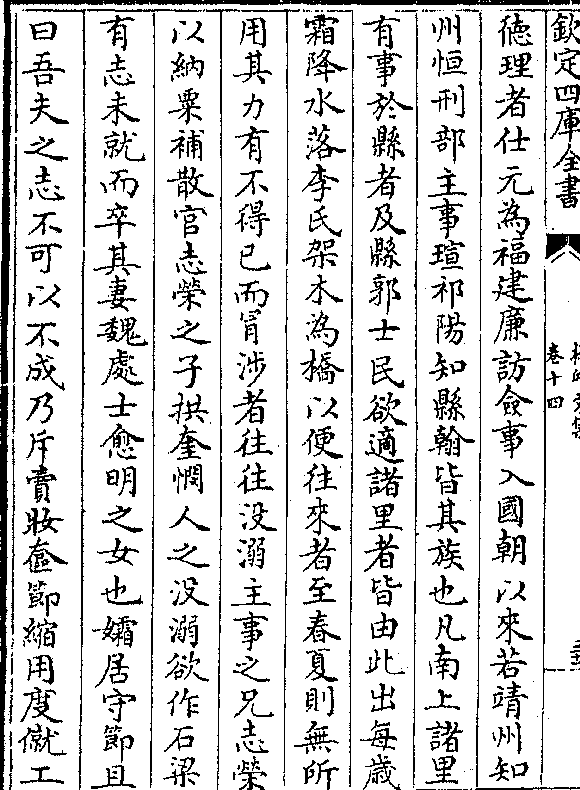 欽定四庫全書
卷十四
徳理者仕元為福建廉訪僉事入國朝以來若靖州知
州恒刑部主事瑄祁陽知縣翰皆其族也凡南上諸里
有事於縣者及縣郭士民欲適諸里者皆由此出每歳
霜降水落李氏架木為橋以便往來者至春夏則無所
用其力有不得已而冐涉者往往没溺主事之兄志榮
以納粟補散官志榮之子拱奎憫人之没溺欲作石梁
有志未就而卒其妻魏處士愈明之女也孀居守節且
曰吾夫之志不可以不成乃斥賣妝奩節縮用度僦工